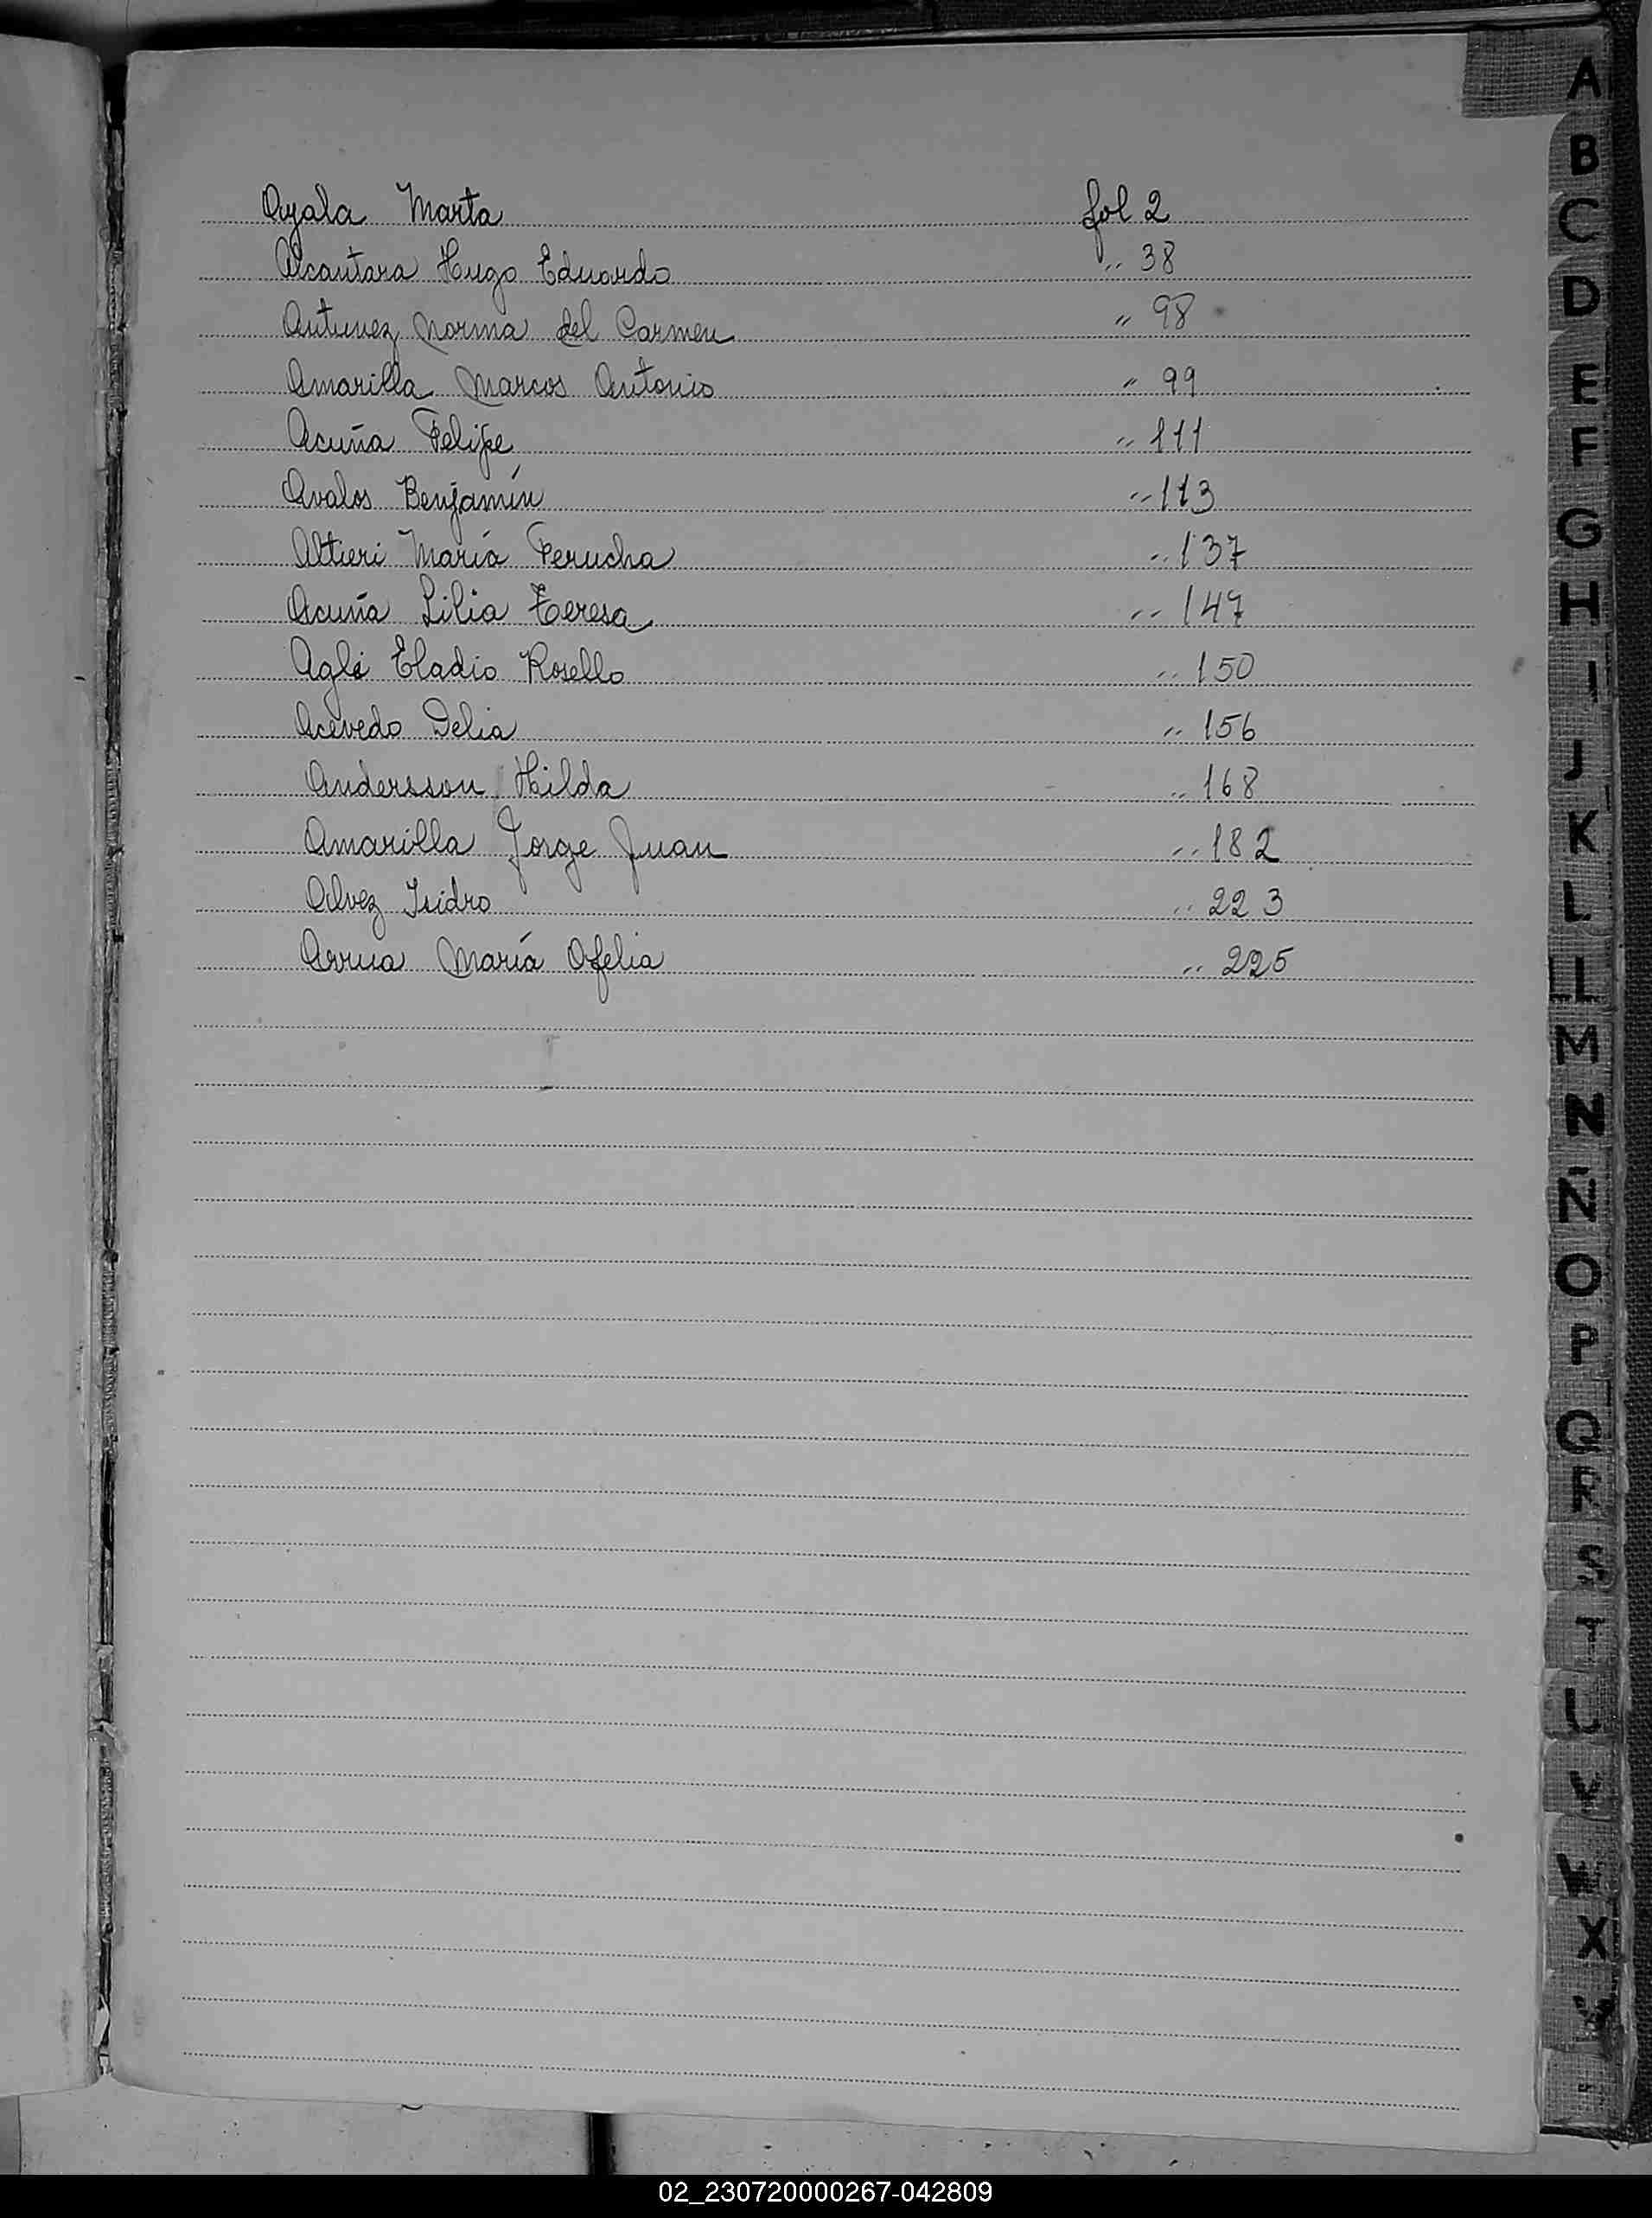 Ayala Marta fol 2
Alcantara Hugo Eduardo " 38
Antunez Norma del Carmen " 98
Amarilla Marcos Antonio " 99
Acuña Felipe " 111
Avalos Benjamín " 113
Altieri María Ferucha " 137
Acuña Lilia Teresa " 147
Eladio Rosello " 150
Acevedo Delia " 156
Andersson Hilda " 168
Amarilla Jorge Juan " 182
Alvez Isidro " 223
Arrua María Ofelia " 225
A
B
C
D
E
F
G
H
I
J
K
L
LL
M
N
Ñ
O
P
Q
R
S
T
U
V
W
X
Y
02_230720000267-042809